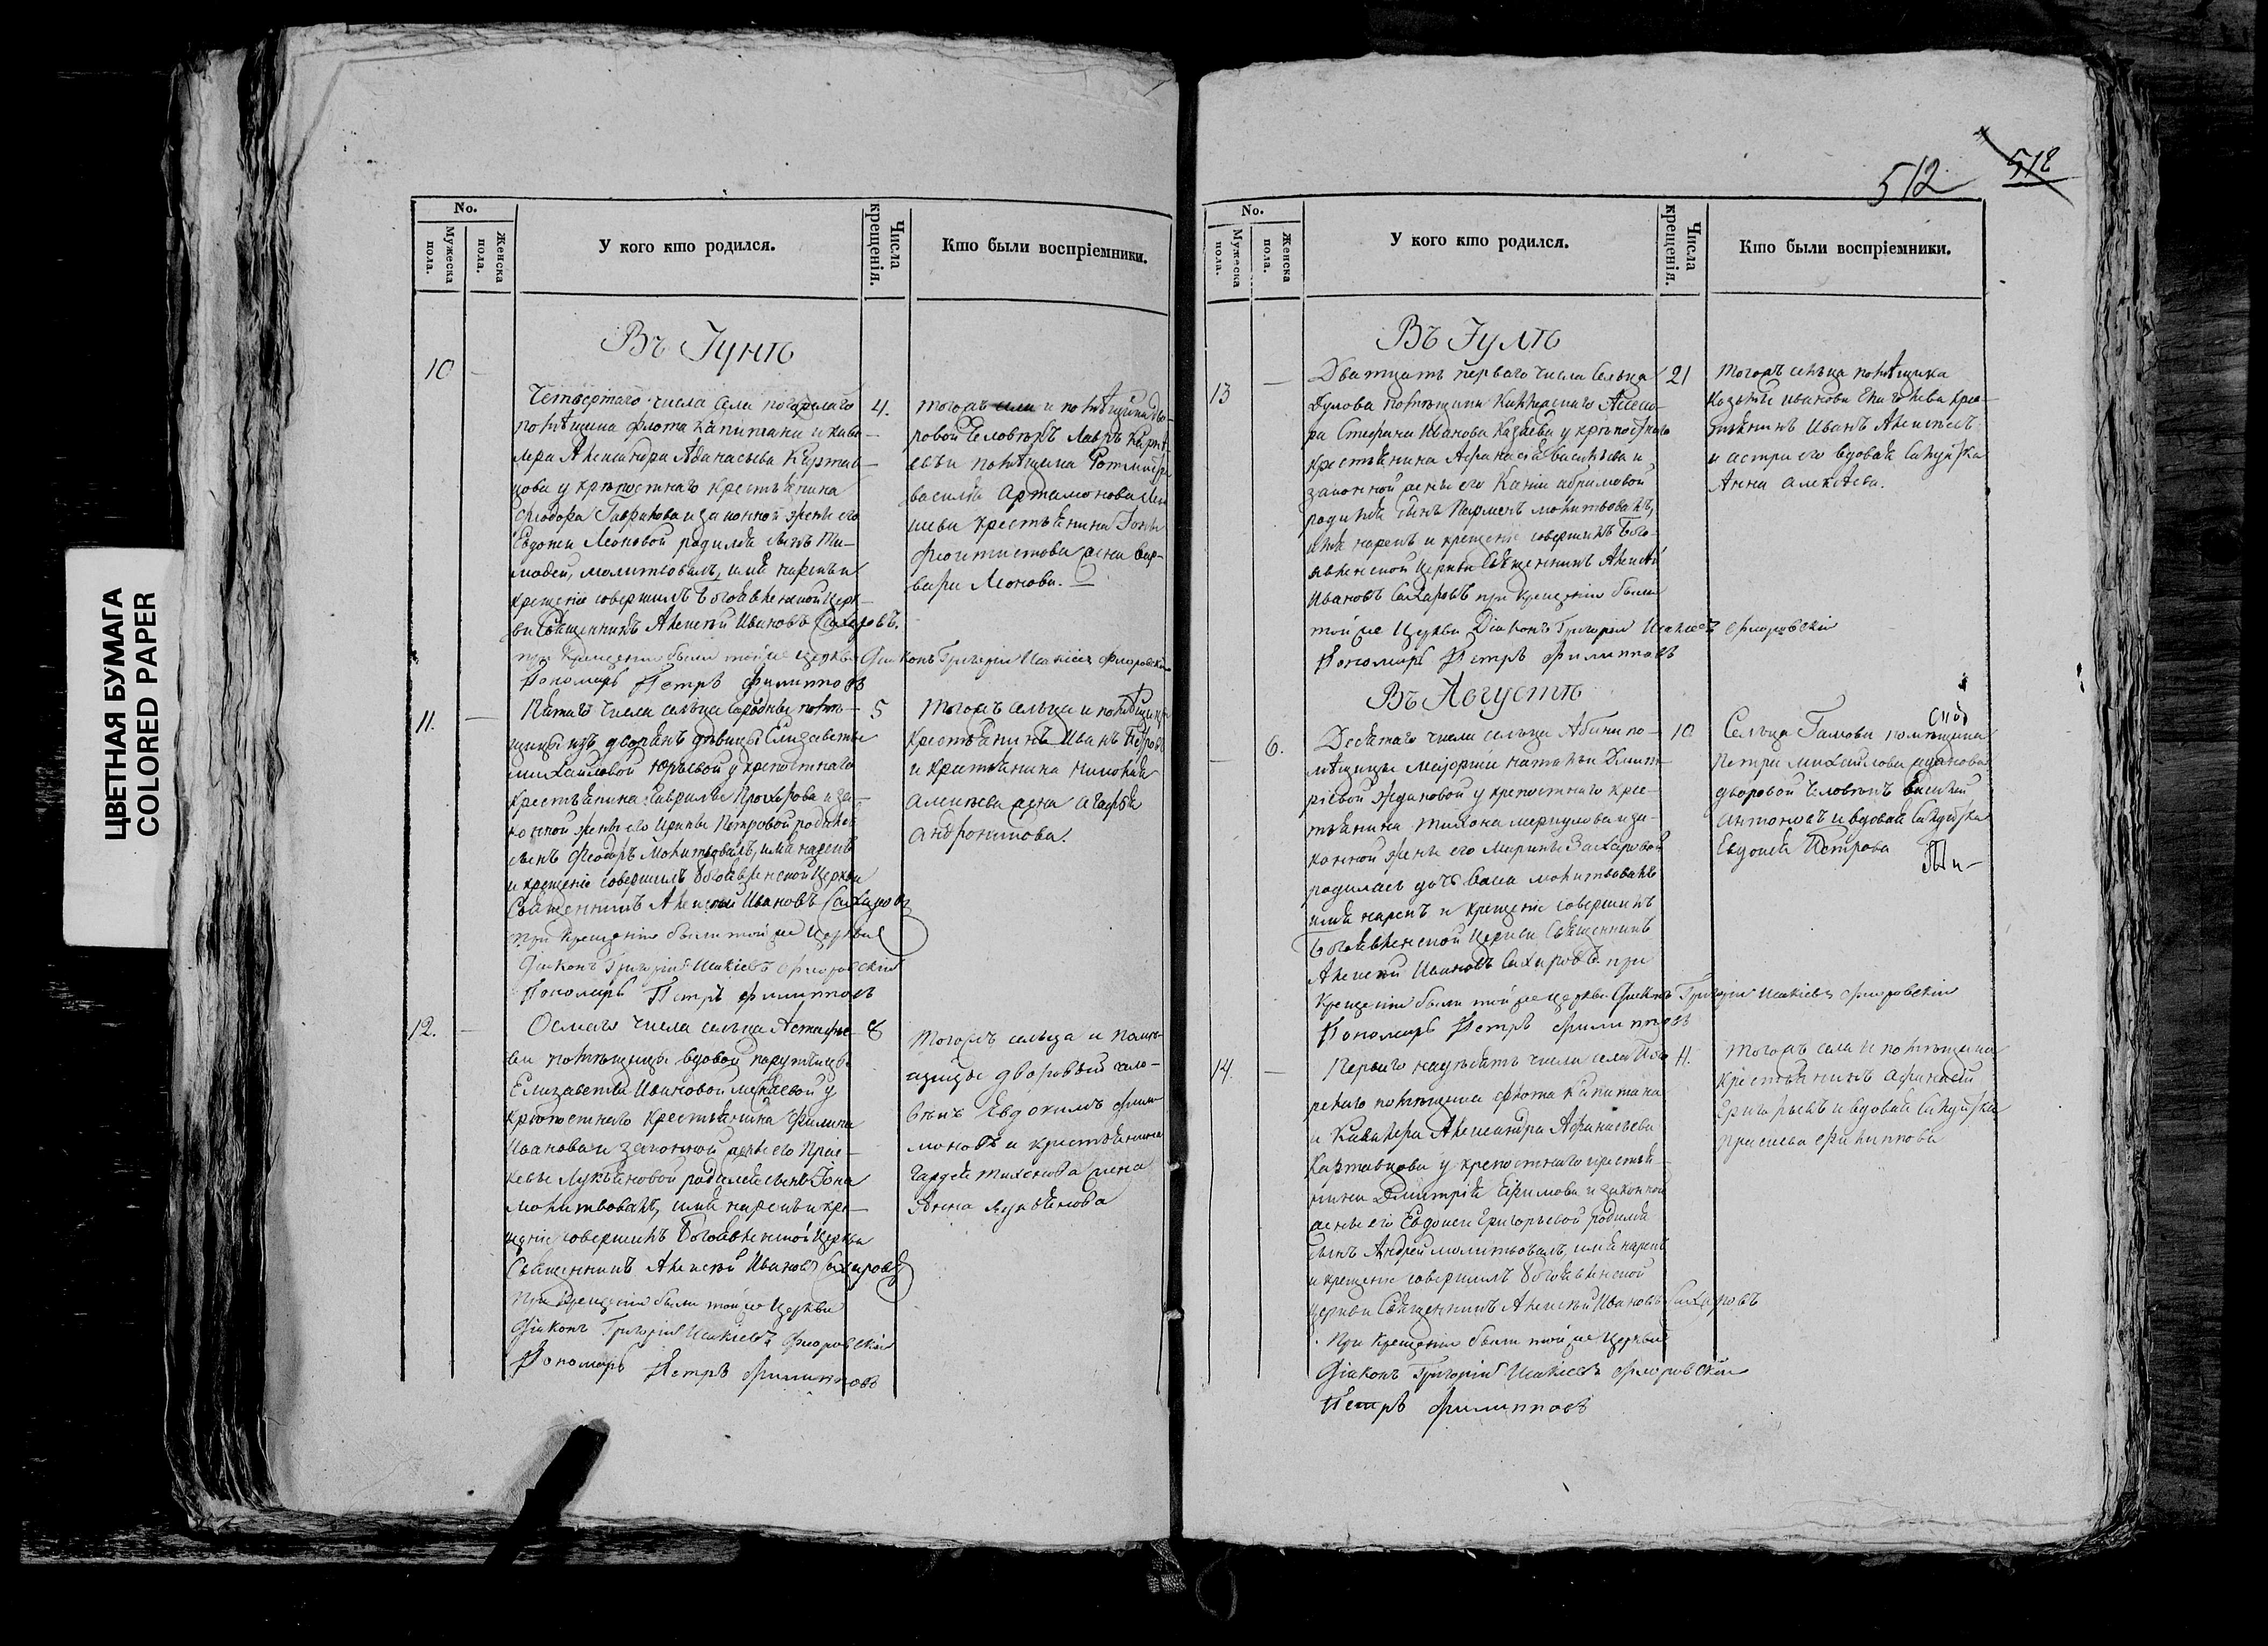 ЦВЕТНАЯ БУМАГА
COLORED PAPER
No.
Мужеска пола.
Женска пола.
У кого кто родился.
Числа крещенія.
Кто были воспріемники.
Въ Іунѣ
10 —
Четвертаго числа села погорелаго
помѣщика флота капитана и кава-
лера Александра Афанасьева
у крѣпостнаго крестьянина
Феодора Гаврилова и законной жены его
Евдокеи Леоновой родился сынъ Ти-
мофей, молитвовалъ, имя нарекъ и
крещеніе совершилъ Богоявленской церк-
ви Священникъ Алексѣй Ивановъ Сахаровъ.
при крещеніи были той же церкви Діаконъ Григорій Исакіевъ Флоровскій
Пономарь Петръ Филипповъ
4.
тогожъ и помѣщика дво-
ровой человѣкъ Лавръ
и помѣщика Ротмистра
василья Артамонова
крестьянина
жена Вар-
вара Леонова.
11. —
Пятаго числа сельца помѣ-
щицы изъ дворянъ дѣвицы Елизаветы
михайловой Юрьевой у крепостнаго
крестьянина Гаврилы Прохорова и за-
конной жены его Ирины Петровой родился
сынъ Феодоръ молитвовалъ, имя нарекъ
и крещеніе совершилъ Богоявленской церкви
Священникъ Алексѣй Ивановъ Сахаровъ
при крещеніи были той же церкви
Діаконъ Григорій Исакіевъ Флоровскій
Пономарь Петръ Филипповъ
5
тогожъ сельца и помѣщицы
крестьянинъ Иванъ Петровъ
и крестьянина
жена Агафья
Андроникова.
12. —
Осмаго числа сельца Астафье-
ва помѣщицы вдовой поручицы
Елизаветы Ивановой у
крѣпостнаго крестьянина Филипа
Иванова и законной жены его Прас-
ковьи Лукьяновой родился сынъ Іона
молитвовалъ, имя нарекъ и кре-
щеніе совершилъ Богоявленской церкви
Священникъ Алексѣй Ивановъ Сахаровъ
При крещеніи были той же церкви
Діаконъ Григорій Исакіевъ Флоровскій
Пономарь Петръ Филипповъ
8
тогожъ сельца и помѣ-
щицы дворовый чело-
вѣкъ Евдокимъ Фили-
моновъ и крестьянина
жена
Анна Лукьянова
512
512
No.
Мужеска пола.
Женска пола.
У кого кто родился.
Числа крещенія.
Кто были воспріемники.
Въ Іулѣ
13 —
Дватцать перваго числа сельца
Дулова помѣщика Коллежскаго Ассесо-
ра Стефана Иванова у крѣпостнаго
крестьянина Афанасья Васильева и
законной жены его
родился сынъ Парменъ молитвовалъ,
имя нарекъ и крещеніе совершилъ Бого-
явленской церкви Священникъ Алексѣй
Ивановъ Сахаровъ при крещеніи были
той же церкви Діаконъ Григорій Исакіевъ Флоровскій
Пономарь Петръ Филипповъ
21
тогожъ сельца помѣщика
крес-
тьянинъ Иванъ Алексѣевъ
и сестра его вдовая салдатка
Анна Алексѣева.
Въ Августѣ
— 6.
Десятаго числа сельца Абакина по-
мѣщицы маіорши натальи Дмит-
ріевой Ждановой у крепостнаго крес-
тьянина тихона меркулова и за-
конной жены его Марины Захаровой
родилась дочь молитвовалъ
имя нарекъ и крещеніе совершилъ
Богоявленской церкви Священникъ
Алексѣй Ивановъ Сахаровъ. при
крещеніи были той же церкви Діаконъ Григорій Исакіевъ Флоровскій
Пономарь Петръ Филипповъ
10
Сельца помѣщика
Петра Михайлова
дворовой человѣкъ
Антоновъ и вдовая салдатка
Евдокея Петрова
14. —
Перваго надесять числа села Пого-
релаго помѣщика флота капитана
и Кавалера Александра Афанасьева
у крепостнаго крестья-
нина Дмитрія Ефимова и законной
жены его Евдокеи Григорьевой родился
сынъ Андрей молитвовалъ, имя нарекъ
и крещеніе совершилъ Богоявленской
церкви Священникъ Алексѣй Ивановъ Сахаровъ
При крещеніи были той же церкви
Діаконъ Григорій Исакіевъ Флоровскій
Петръ Филипповъ
11.
тогожъ села и помѣщика
крестьянинъ Афанасей
Григорьевъ и вдовая салдатка
Филиппова